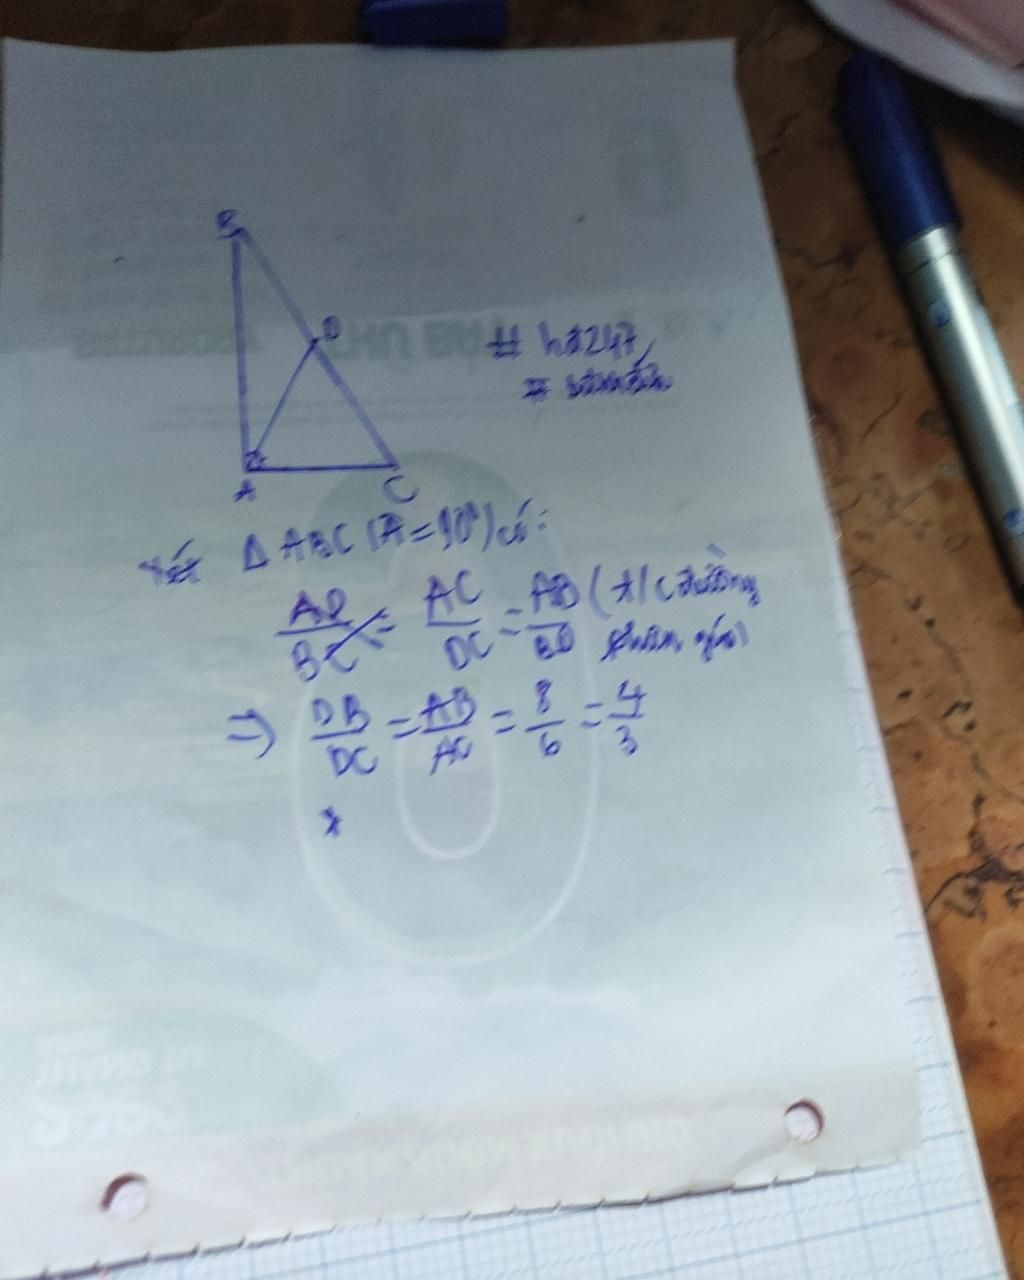 B
D
# hđ247
A
C
Xét Δ ABC (A = 90°) có:
AD/BC = AC/DC = AB/BD (t/c đường
phân giác)
⇒ DB/DC = AB/AC = 8/6 = 4/3
*